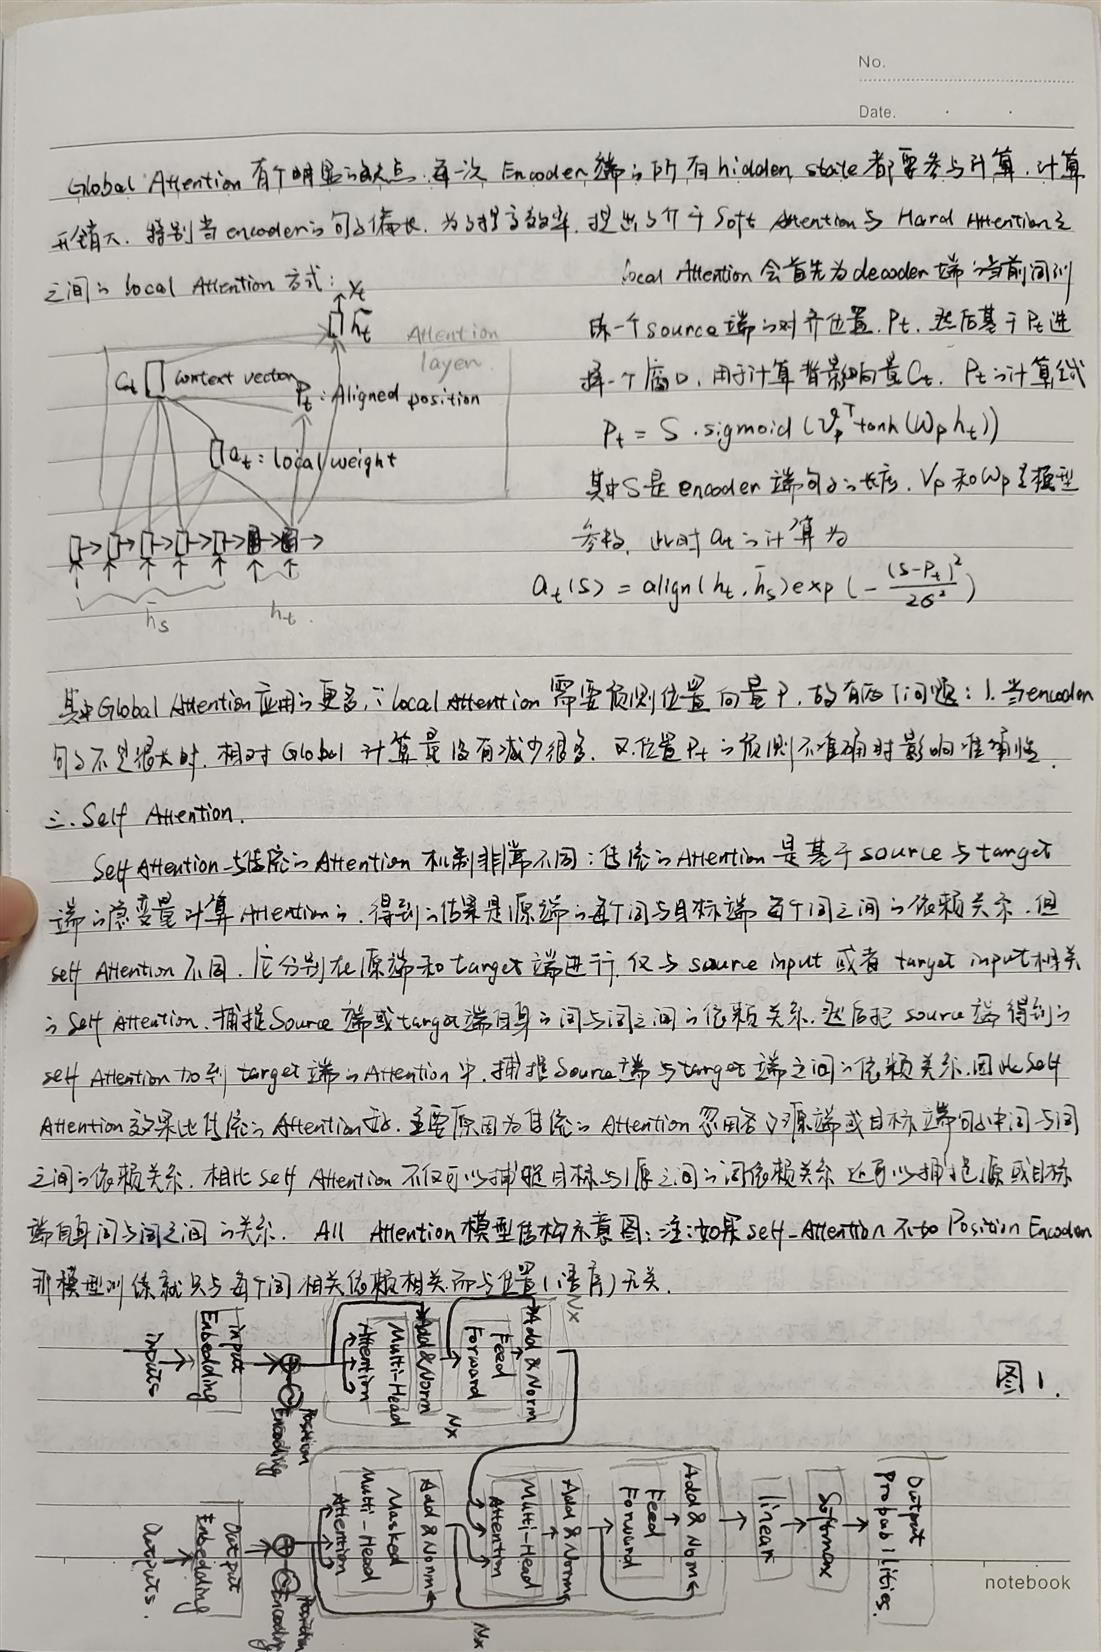 No.
Date.
Global Attention 有个明显的缺点,每一次 Encoder 端的所有 hidden state 都要参与计算,计算
开销大,特别当encoder的句子偏长,为了提高效率,提出了介于Soft Attention与 Hard Attention之
之间的 local Attention 方式:
local Attention 会首先为decoder端的当前词训
练一个source端的对齐位置,Pt,然后基于Pt选
择一个窗口,用于计算背景向量Ct,Pt的计算式
Pt = S·sigmoid(Vp^T tanh(Wp ht))
其中S是encoder端句子的长度,Vp和Wp是模型
参数,此时at的计算为
at(s) = align(ht, h̄s)exp(-(s-Pt)²/2σ²)
Yt
h̃t
Attention
layer.
Ct
context vector
Pt:Aligned position
at:local weight
h̄s
ht
其中Global Attention应用的更多,∵local Attention 需要预测位置向量P,故有两个问题:1.当encoder
句子不是很长时,相对Global 计算量没有减少很多,2.位置Pt的预测不准确时影响准确性.
三.Self Attention.
Self Attention与传统的Attention机制非常不同:传统的Attention是基于source与target
端的隐变量计算Attention的,得到的结果是源端的每个词与目标端每个词之间的依赖关系.但
self Attention不同,它分别在源端和target端进行,仅与source input或者target input相关
的Self Attention,捕捉Source端或target端自身的词与词之间的依赖关系,然后把source端得到的
self Attention加到target端的Attention中,捕捉Source端与target端之间的依赖关系.因此self
Attention效果比传统的Attention好,主要原因为传统的Attention忽略了源端或目标端句中词与词
之间的依赖关系,相比self Attention不仅可以捕捉目标与源之间的词依赖关系还可以捕捉源或目标
端自身词与词之间的关系. All Attention模型结构示意图:注:如果self-Attention不加Position Encoder
那模型训练就只与每个词相关依赖相关而与位置(语序)无关.
图1.
inputs
input
Embedding
Position
Encoding
Multi-Head
Attention
Add & Norm
Nx
Feed
Forward
Add & Norm
Nx
Outputs.
Output
Embedding
Position
Encoding
Masked
Multi-Head
Attention
Add & Norm
Nx
Multi-Head
Attention
Add & Norm
Feed
Forward
Add & Norm
linear
Softmax
Output
Probabilities.
notebook